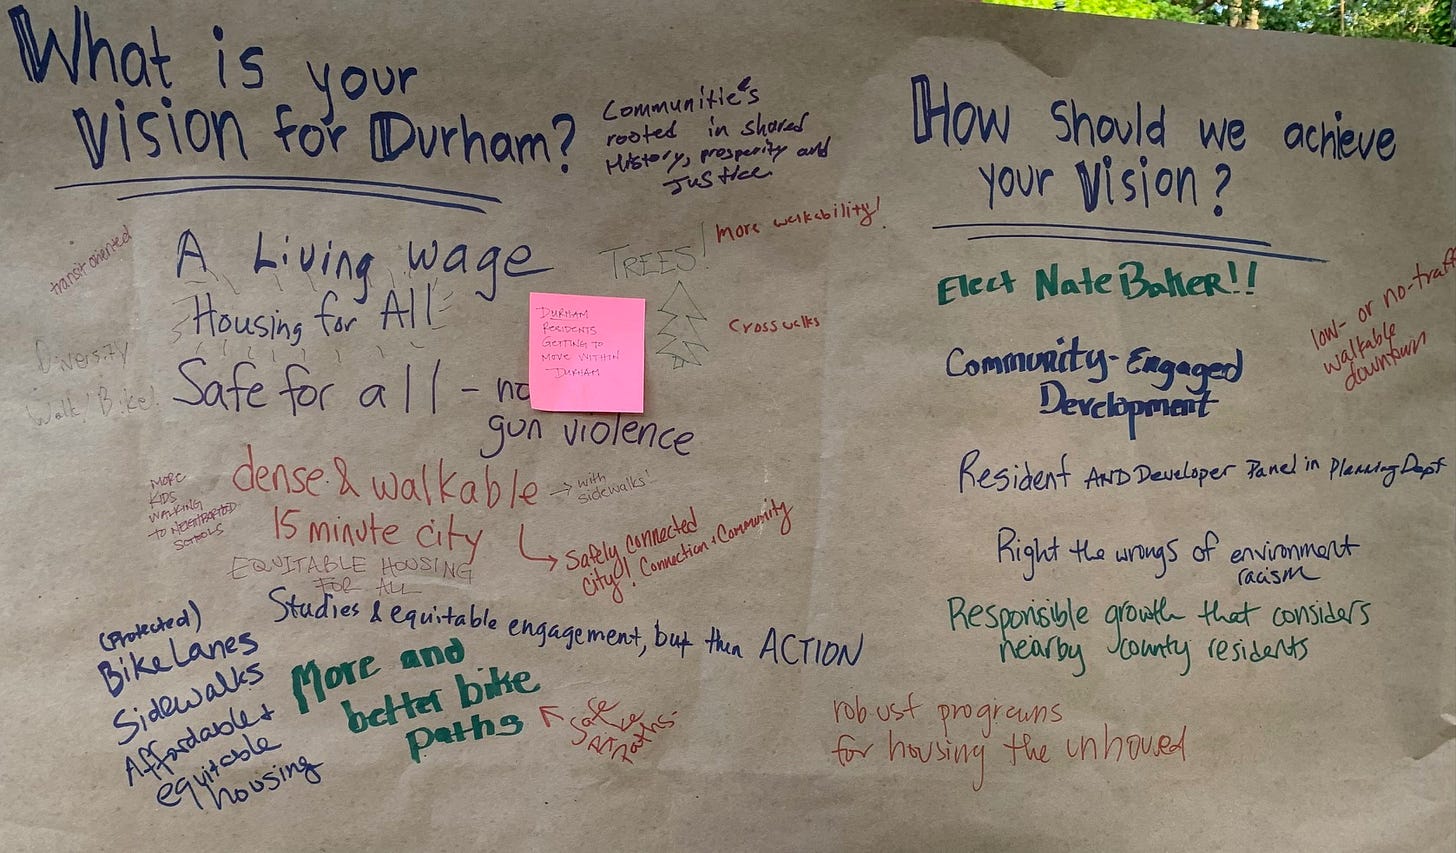 What is your
Vision for Durham?
Communitie's
rooted in shared
History, prosperity and
Justice
transit oriented
A Living wage
Housing for All
Safe for all - no
gun violence
TREES!
More walkability!
Crosswalks
DURHAM
RESIDENTS
GETTING TO
MOVE WITHIN
DURHAM
Diversity
Walk/Bike!
MORE
KIDS
WALKING
TO NEIGHBORHOOD
SCHOOLS
dense & walkable
→ with
sidewalks!
15 minute city
Safely connected
city! Connection + Community
EQUITABLE HOUSING
FOR ALL
Studies & equitable engagement, but then ACTION
(Protected)
Bike Lanes
Sidewalks
Affordable +
equitable
housing
More and
better bike
paths
Safe
paths
How should we achieve
your Vision?
Elect Nate Baker!!
Community-Engaged
Development
low- or no-traff
walkable
downtown
Resident AND Developer Panel in Planning Dept
Right the wrongs of environment
racism
Responsible growth that considers
nearby county residents
robust programs
for housing the unhoused